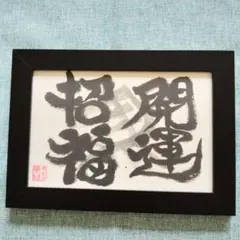 開運
招福